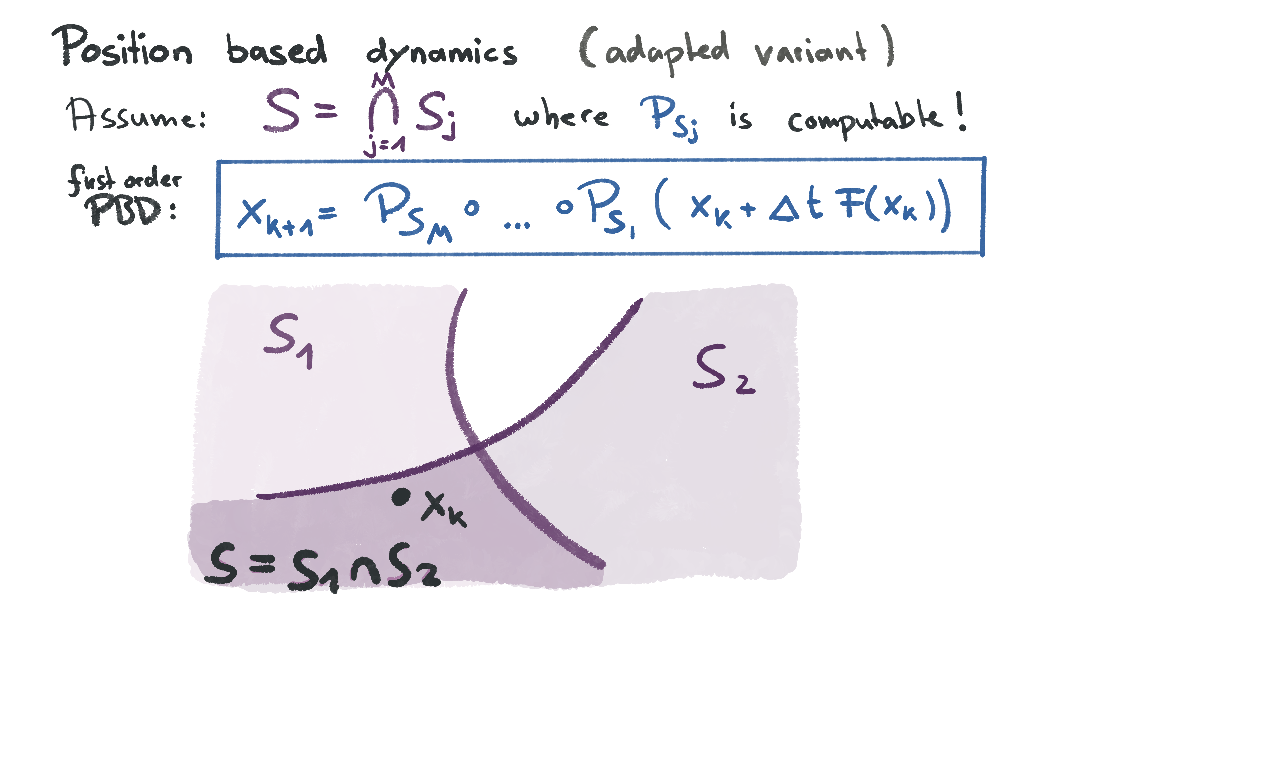 Position based dynamics (adapted variant)
Assume: S = ⋂_{j=1}^{M} S_j where P_{S_j} is computable!
first order
PBD: x_{k+1} = P_{S_M} ∘ ... ∘ P_{S_1} ( x_k + Δt F(x_k))
S_1
S_2
x_k
S = S_1 ∩ S_2